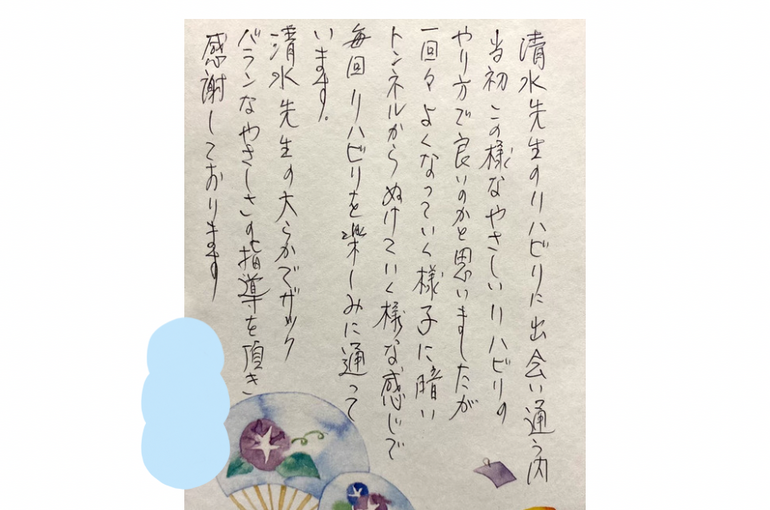 清水先生のリハビリに出会い通う内
当初この様なやさしいリハビリの
やり方で良いのかと思いましたが
一回々よくなっていく様子に暗い
トンネルからぬけていく様な感じで
毎回リハビリを楽しみに通って
います。
清水先生の大らかでザック
バランなやさしさの指導を頂き
感謝しております